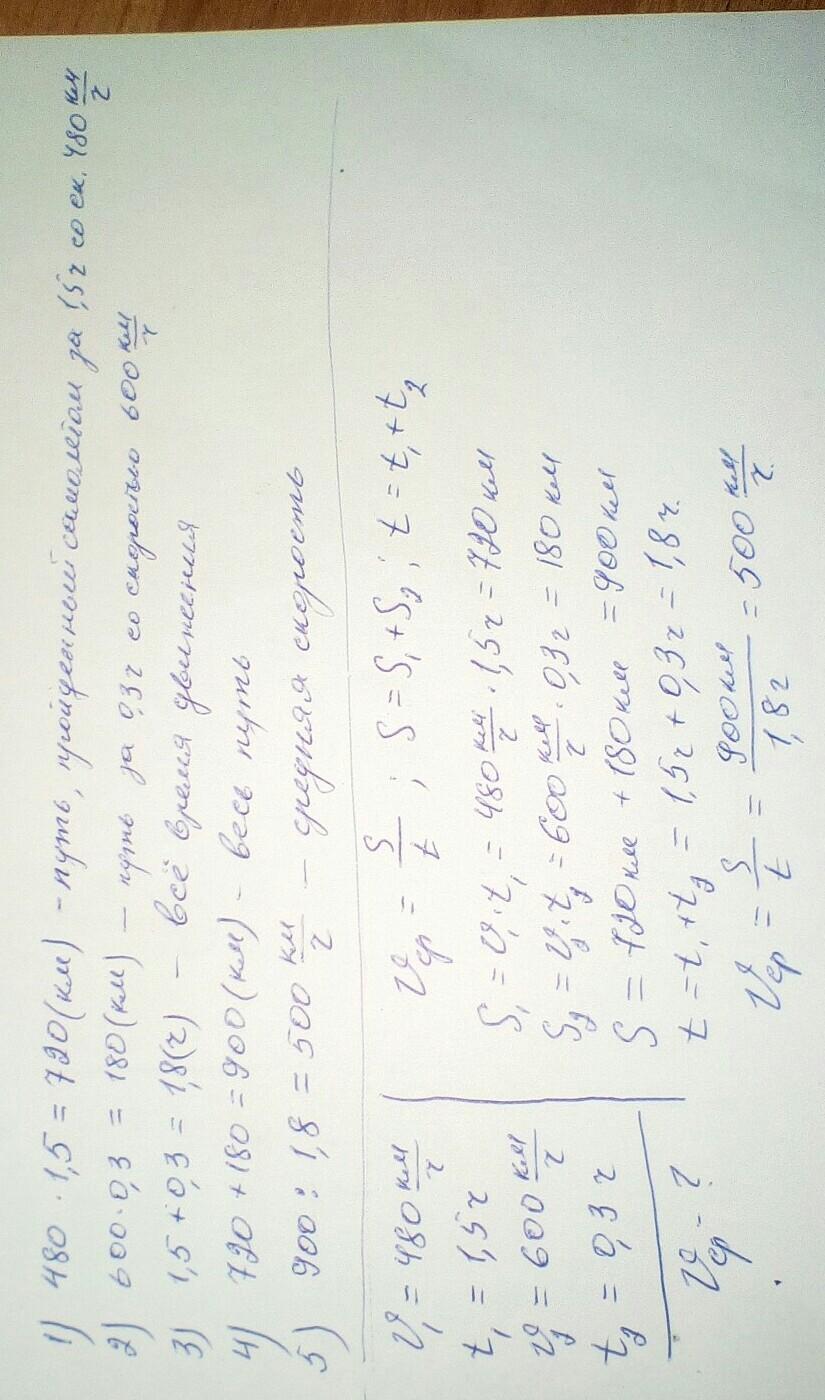 1) 480 · 1,5 = 720 (км) – путь, пройденный самолётом за 1,5 ч со ск. 480 км/ч
2) 600 · 0,3 = 180 (км) – путь за 0,3 ч со скоростью 600 км/ч
3) 1,5 + 0,3 = 1,8 (ч) – всё время движения
4) 720 + 180 = 900 (км) – весь путь
5) 900 : 1,8 = 500 км/ч – средняя скорость
υ₁ = 480 км/ч
t₁ = 1,5 ч
υ₂ = 600 км/ч
t₂ = 0,3 ч
υср - ?
υср = S/t ; S = S₁ + S₂ ; t = t₁ + t₂
S₁ = υ₁ · t₁ = 480 км/ч · 1,5 ч = 720 км
S₂ = υ₂ · t₂ = 600 км/ч · 0,3 ч = 180 км
S = 720 км + 180 км = 900 км
t = t₁ + t₂ = 1,5 ч + 0,3 ч = 1,8 ч.
υср = S/t = 900 км/1,8 ч = 500 км/ч.